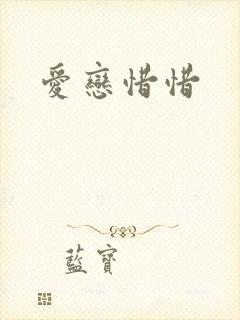 愛戀惜惜
藍寶